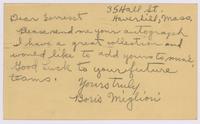 35 Hall St.
Haverhill, Mass,
Dear Forrest
Please send me your autograph
I have a great collection and
would like to add yours to mine.
Good luck to your future
teams.
Yours truly
Boris Miglioni